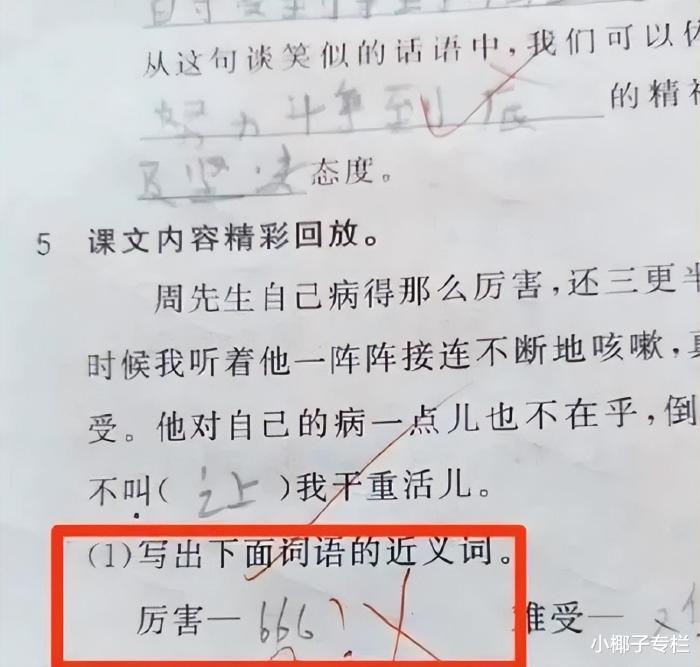 从这句谈笑似的话语中，我们可以体
努力斗争到底 的精神
及坚决态度。
5 课文内容精彩回放。
周先生自己病得那么厉害，还三更半
时候我听着他一阵阵接连不断地咳嗽，真
受。他对自己的病一点儿也不在乎，倒
不叫(让)我干重活儿。
(1)写出下面词语的近义词。
厉害—666 难受—
小椰子专栏